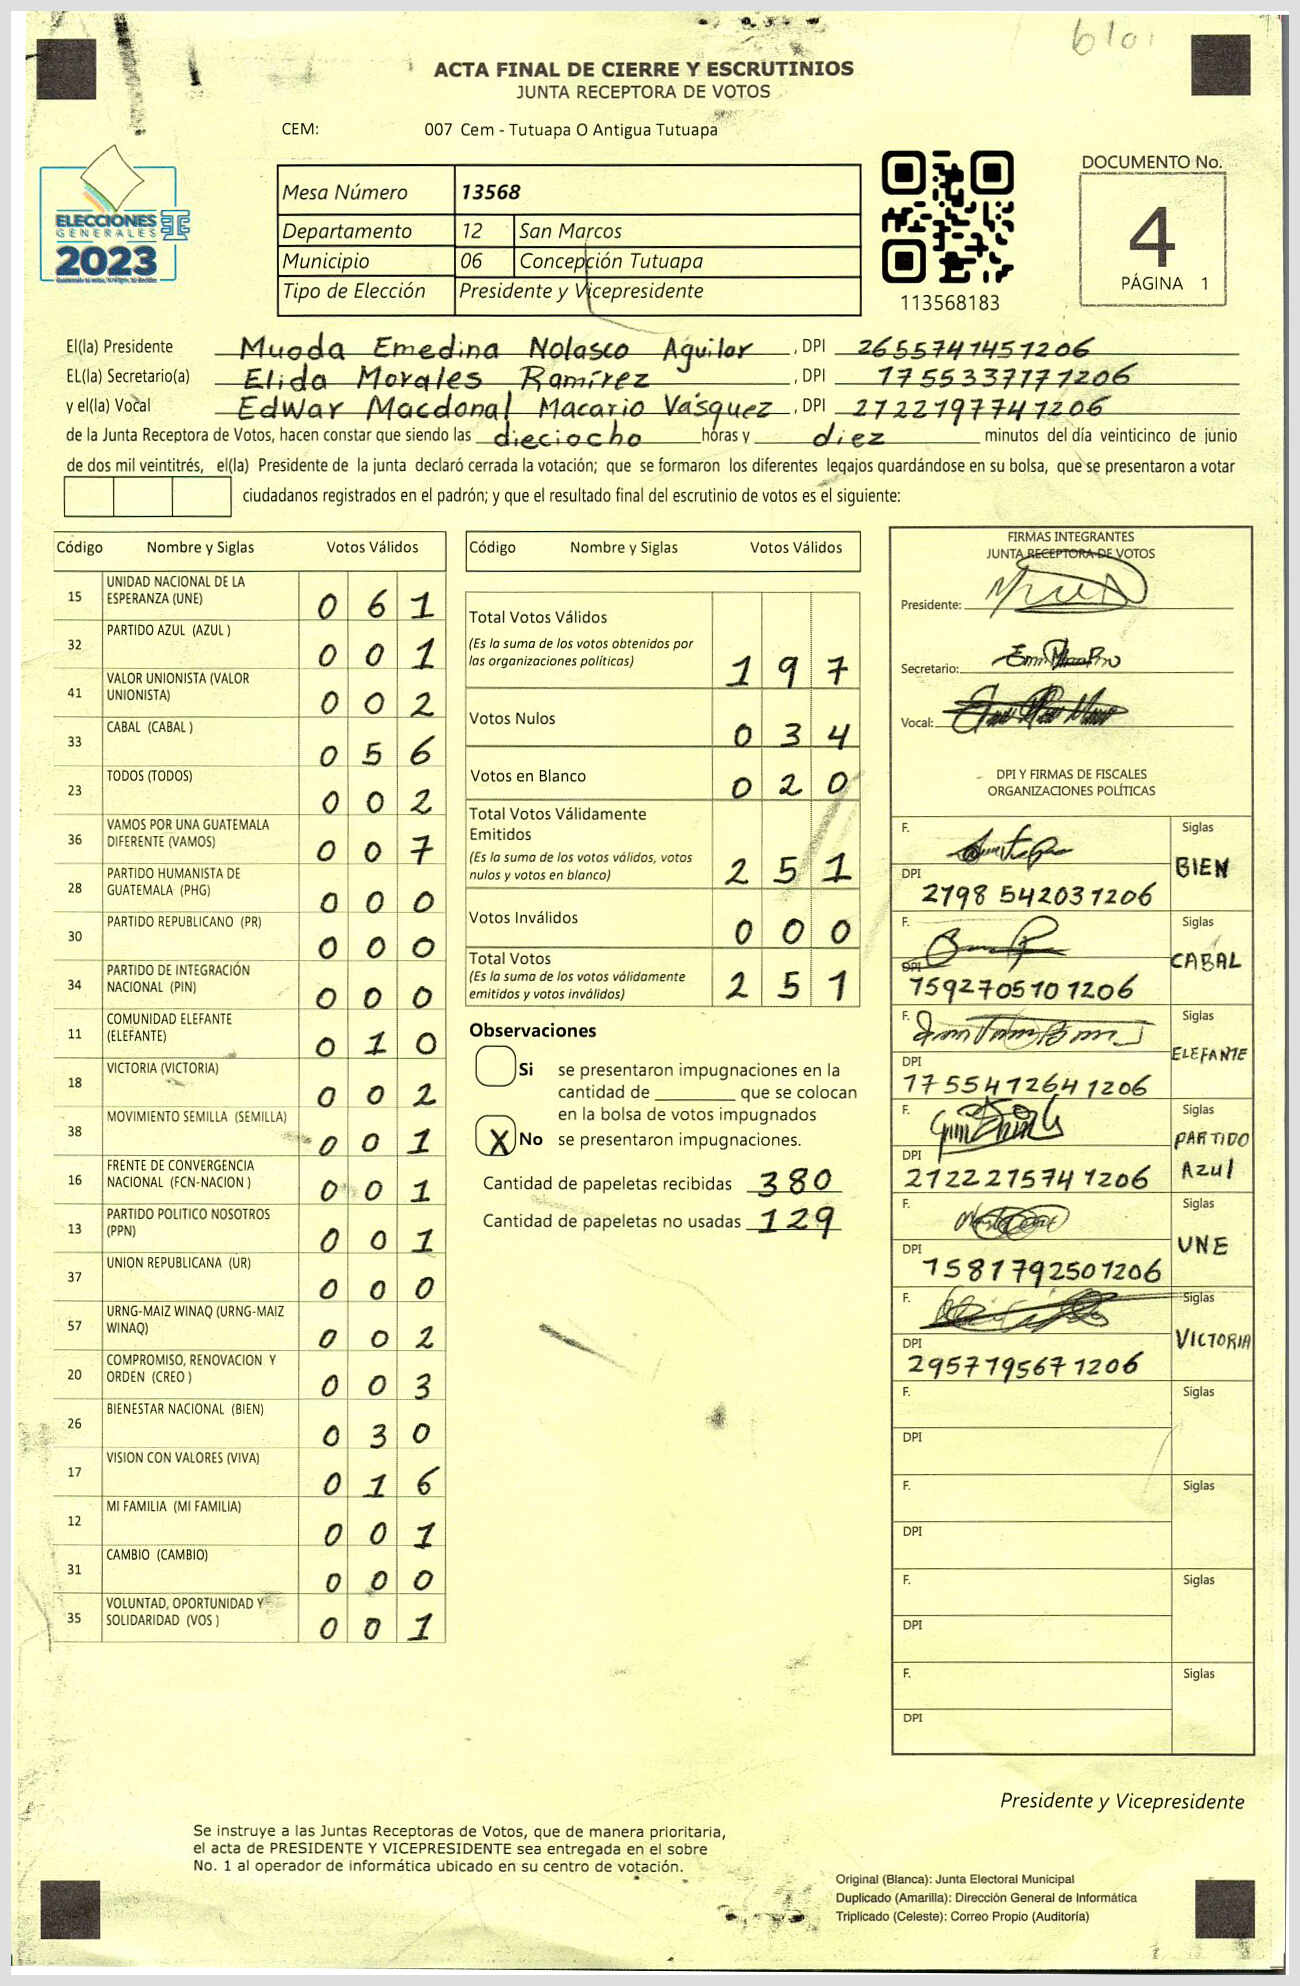 6101
ACTA FINAL DE CIERRE Y ESCRUTINIOS
JUNTA RECEPTORA DE VOTOS
CEM: 007 Cem - Tutuapa O Antigua Tutuapa
ELECCIONES
GENERALES
2023
Mesa Número 13568
Departamento 12 San Marcos
Municipio 06 Concepción Tutuapa
Tipo de Elección Presidente y Vicepresidente
113568183
DOCUMENTO No.
4
PÁGINA 1
El(la) Presidente Muoda Emedina Nolasco Aguilar, DPI 2655741451206
EL(la) Secretario(a) Elida Morales Ramírez, DPI 1755337171206
y el(la) Vocal Edwar Macdonal Macario Vásquez, DPI 2722197741206
de la Junta Receptora de Votos, hacen constar que siendo las dieciocho horas y diez minutos del día veinticinco de junio
de dos mil veintitrés, el(la) Presidente de la junta declaró cerrada la votación; que se formaron los diferentes legajos quardándose en su bolsa, que se presentaron a votar
ciudadanos registrados en el padrón; y que el resultado final del escrutinio de votos es el siguiente:
Código Nombre y Siglas Votos Válidos
15 UNIDAD NACIONAL DE LA ESPERANZA (UNE) 0 6 1
32 PARTIDO AZUL (AZUL ) 0 0 1
41 VALOR UNIONISTA (VALOR UNIONISTA) 0 0 2
33 CABAL (CABAL ) 0 5 6
23 TODOS (TODOS) 0 0 2
36 VAMOS POR UNA GUATEMALA DIFERENTE (VAMOS) 0 0 7
28 PARTIDO HUMANISTA DE GUATEMALA (PHG) 0 0 0
30 PARTIDO REPUBLICANO (PR) 0 0 0
34 PARTIDO DE INTEGRACIÓN NACIONAL (PIN) 0 0 0
11 COMUNIDAD ELEFANTE (ELEFANTE) 0 1 0
18 VICTORIA (VICTORIA) 0 0 2
38 MOVIMIENTO SEMILLA (SEMILLA) 0 0 1
16 FRENTE DE CONVERGENCIA NACIONAL (FCN-NACION ) 0 0 1
13 PARTIDO POLITICO NOSOTROS (PPN) 0 0 1
37 UNION REPUBLICANA (UR) 0 0 0
57 URNG-MAIZ WINAQ (URNG-MAIZ WINAQ) 0 0 2
20 COMPROMISO, RENOVACION Y ORDEN (CREO ) 0 0 3
26 BIENESTAR NACIONAL (BIEN) 0 3 0
17 VISION CON VALORES (VIVA) 0 1 6
12 MI FAMILIA (MI FAMILIA) 0 0 1
31 CAMBIO (CAMBIO) 0 0 0
35 VOLUNTAD, OPORTUNIDAD Y SOLIDARIDAD (VOS ) 0 0 1
Código Nombre y Siglas Votos Válidos
Total Votos Válidos
(Es la suma de los votos obtenidos por
las organizaciones políticas) 1 9 7
Votos Nulos 0 3 4
Votos en Blanco 0 2 0
Total Votos Válidamente
Emitidos
(Es la suma de los votos válidos, votos
nulos y votos en blanco) 2 5 1
Votos Inválidos 0 0 0
Total Votos
(Es la suma de los votos válidamente
emitidos y votos inválidos) 2 5 1
Observaciones
Si se presentaron impugnaciones en la
cantidad de ________ que se colocan
en la bolsa de votos impugnados
X No se presentaron impugnaciones.
Cantidad de papeletas recibidas 380
Cantidad de papeletas no usadas 129
FIRMAS INTEGRANTES
JUNTA RECEPTORA DE VOTOS
Presidente:
Secretario:
Vocal:
DPI Y FIRMAS DE FISCALES
ORGANIZACIONES POLÍTICAS
F. Siglas
BIEN
DPI
2798 542031206
F. Siglas
CABAL
DPI
1592705101206
F. Siglas
ELEFANTE
DPI
1755412641206
F. Siglas
PARTIDO
Azul
DPI
2122215741206
F. Siglas
UNE
DPI
1581792501206
F. Siglas
VICTORIA
DPI
2957195671206
F. Siglas
DPI
F. Siglas
DPI
F. Siglas
DPI
F. Siglas
DPI
Presidente y Vicepresidente
Se instruye a las Juntas Receptoras de Votos, que de manera prioritaria,
el acta de PRESIDENTE Y VICEPRESIDENTE sea entregada en el sobre
No. 1 al operador de informática ubicado en su centro de votación.
Original (Blanca): Junta Electoral Municipal
Duplicado (Amarilla): Dirección General de Informática
Triplicado (Celeste): Correo Propio (Auditoría)